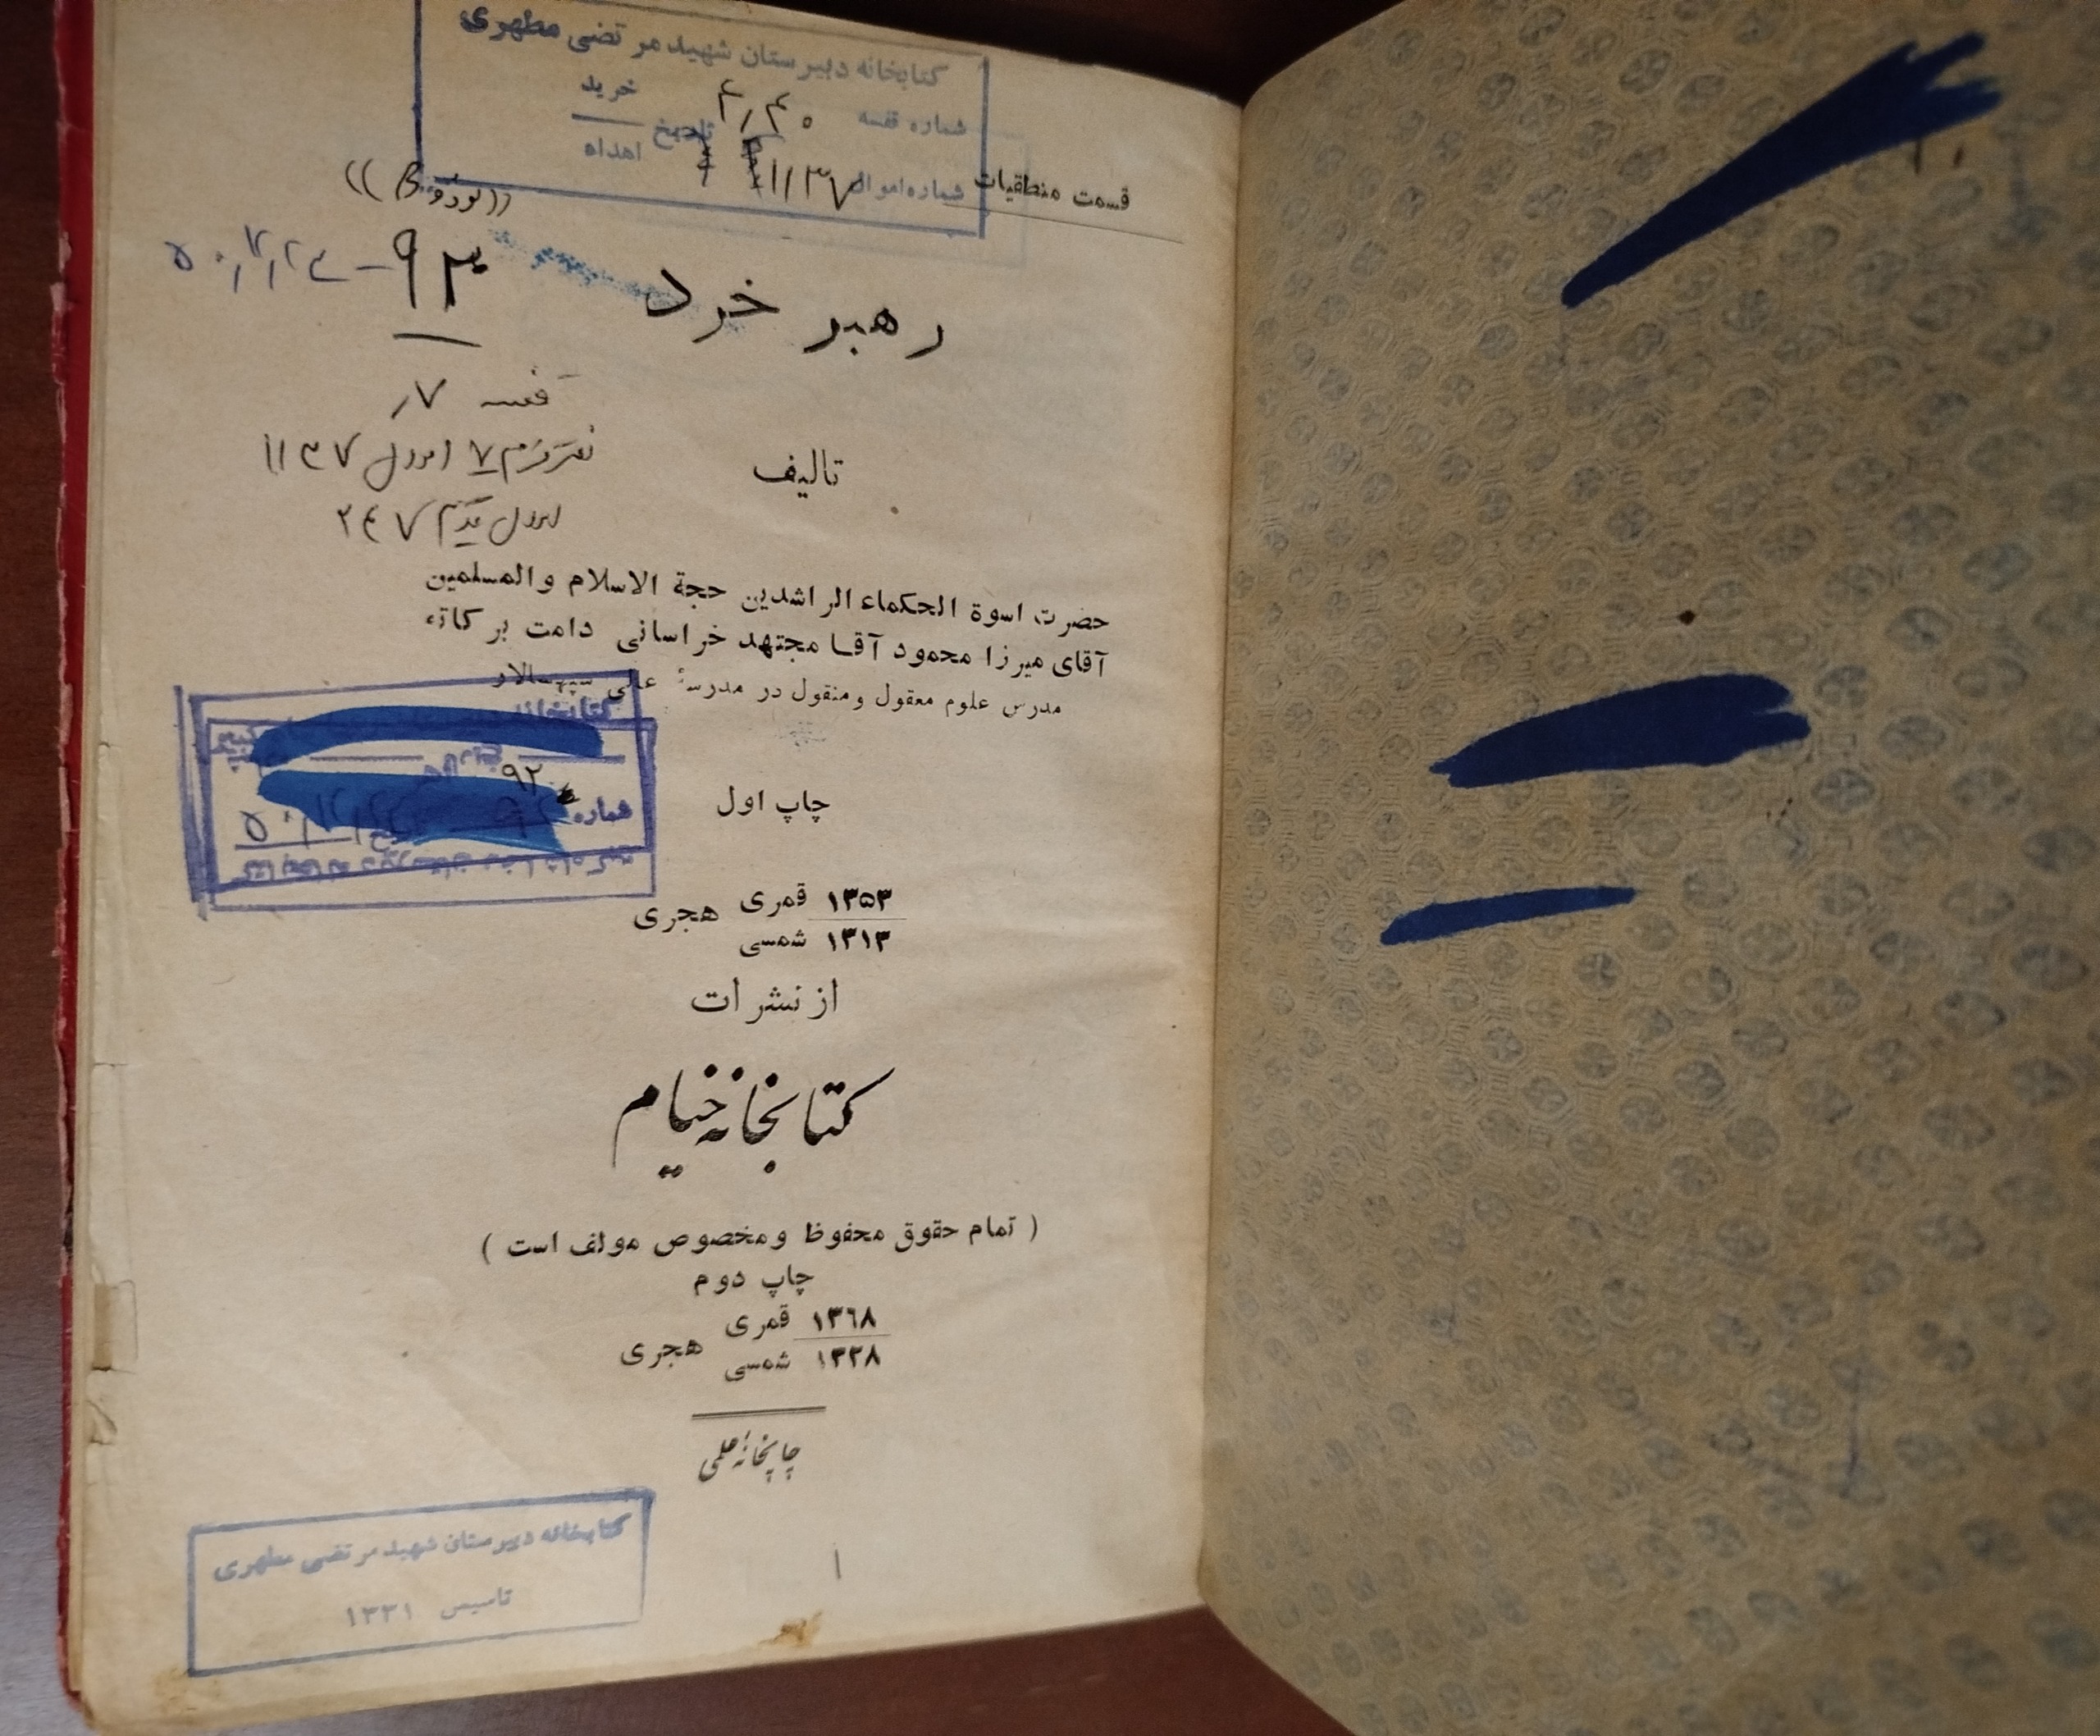 کتابخانه دبیرستان شهید مرتضی مطهری
شماره قفسه ۴٫۴۰ تاریخ خرید اهداء
شماره اموال ۱۱۳۷
قسمت منطقیات
۹۳
رهبر خرد
قفسه ۷٫
۷ اموال ۱۱۳۷
اموال قدیم ۲۴۷
تالیف
حضرت اسوة الحکماء الراشدین حجة الاسلام والمسلمین
آقای میرزا محمود آقا مجتهد خراسانی دامت برکاته
مدرس علوم معقول ومنقول در مدرسهٔ عالی سپهسالار
کتابخانه
۹۲
شماره
چاپ اول
۱۳۵۳ قمری
هجری
۱۳۱۳ شمسی
از نشرات
کتابخانه خیام
( تمام حقوق محفوظ ومخصوص مولف است )
چاپ دوم
۱۳٦۸ قمری
هجری
۱۳۲۸ شمسی
چاپخانهٔ علمی
کتابخانه دبیرستان شهید مرتضی مطهری
تاسیس ۱۳۳۱
۱